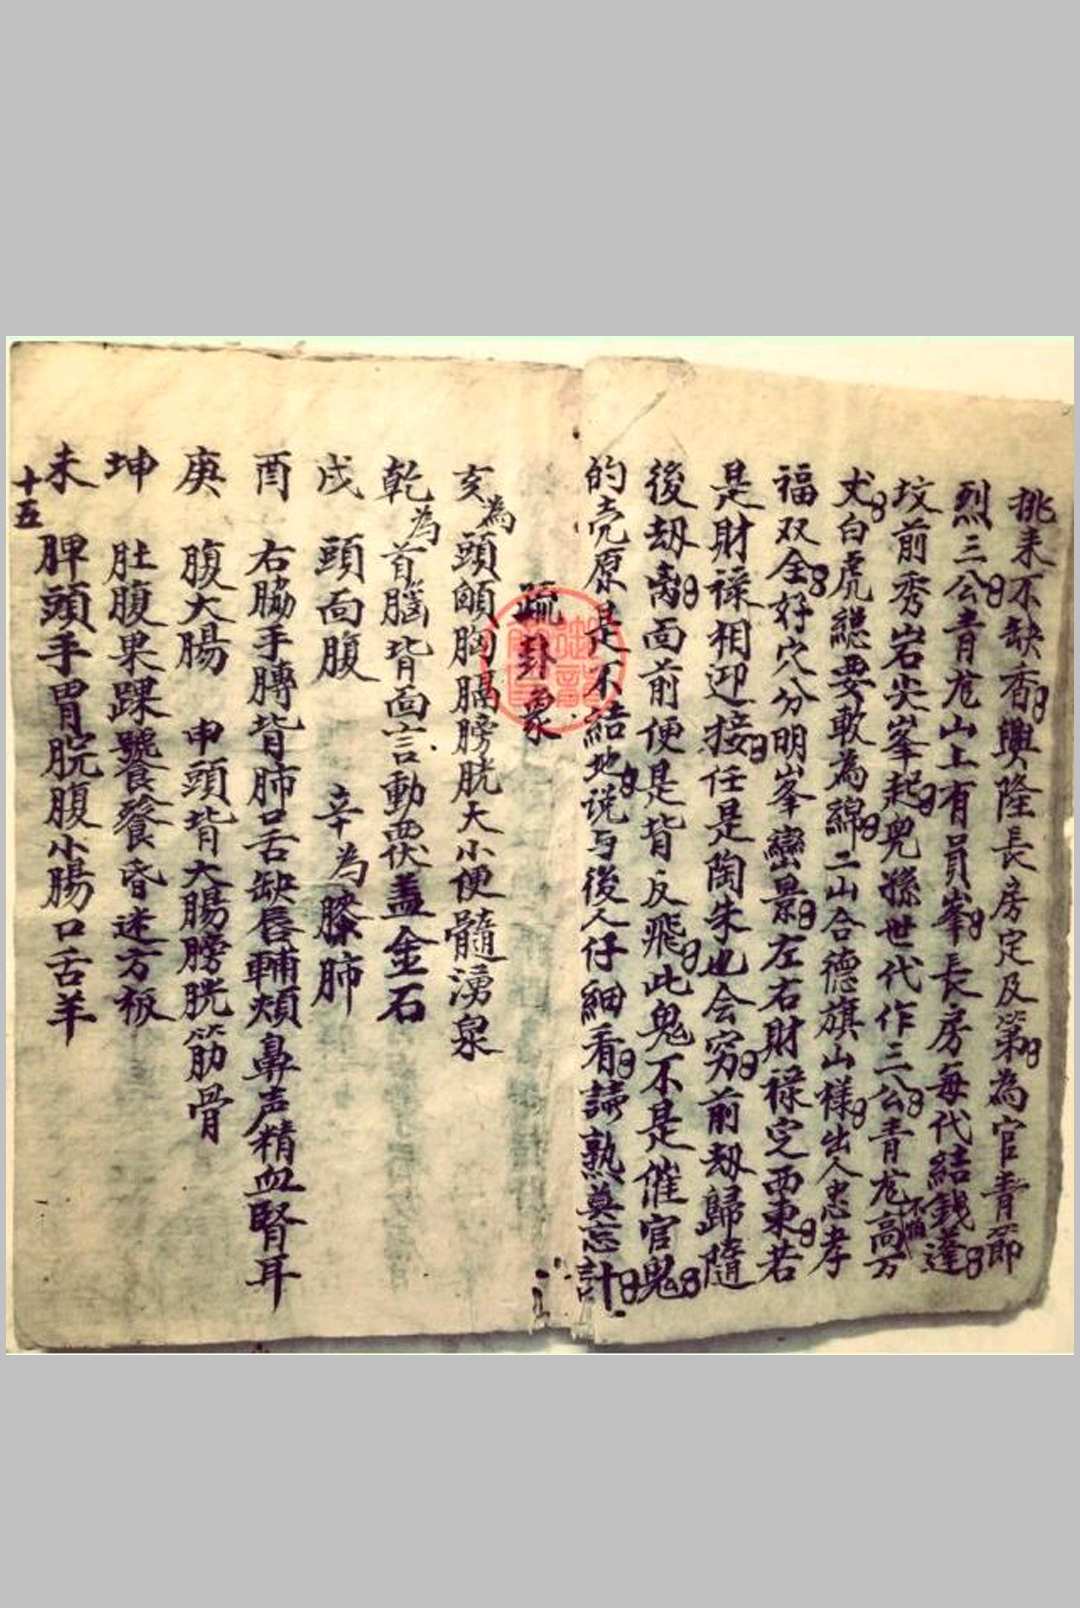 挑来不缺香興隆長房定及第為官青節
烈三公青龙山上有員峯長房每代結錢蓬
坟前秀岩尖峯起児孫世代作三公青龙高万
不怕
丈白虎總要軟為綿二山合德旗山樣出人忠孝
福双全好穴分明峯巒景左右財禄定西東若
是財祿相迎接任是陶朱也会穷前刼歸隨
後刼离面前便是背反飛此鬼不是催官鬼
的壳原是不結地说与後人仔細看請熟莫忘計
疏卦象
亥為頭顱胸膈膀胱大小便髓湧泉
乾為首腦背面言動伏盖金石
戌 頭面腹 辛為膝肺
酉 右脇手膊背肺口舌缺唇輔頰鼻声精血腎耳
庚 腹大腸 申頭背大腸膀胱筋骨
坤 肚腹果踝饕餮昏迷方板
未 脾頭手胃脘腹小腸口舌羊
十五